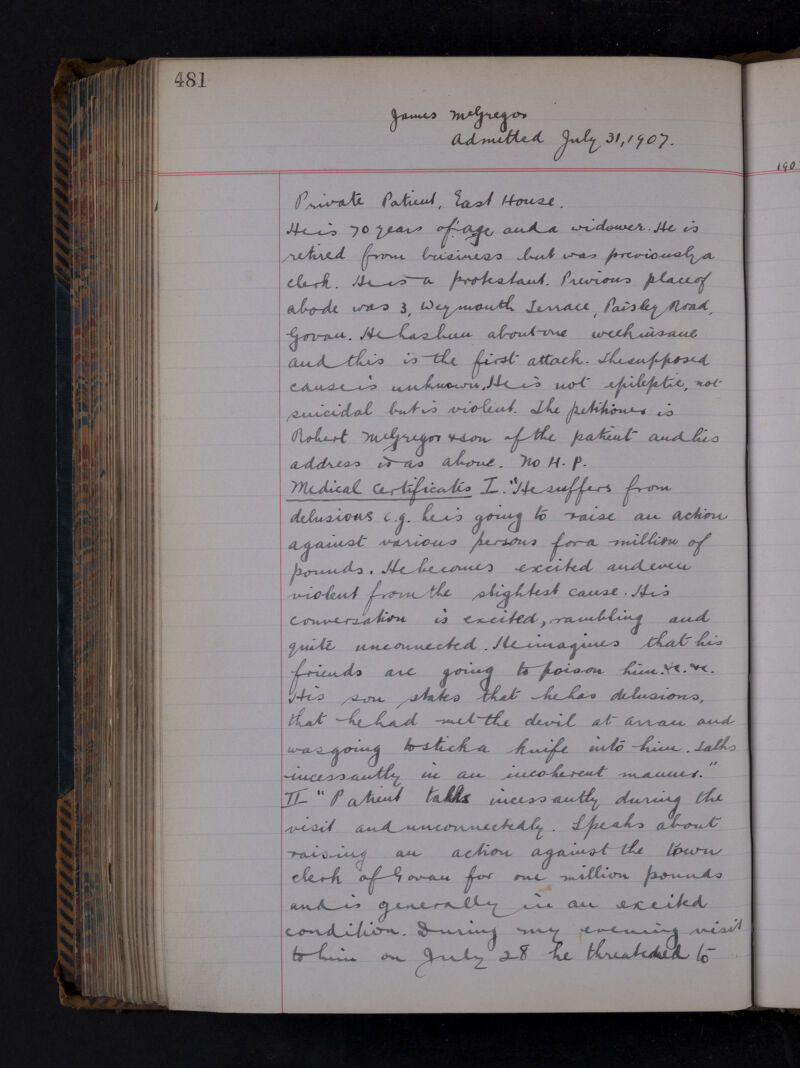 481
James McGregor
Admitted July 31, 1907.
190
Private Patient, East House.
He is 70 years of age and a widower. He is
retired from business but was previously a
clerk. He is a protestant. Previous place of
abode was 3, Weymouth Terrace, Paisley Road,
Govan. He has been about one week insane
and this is the first attack. The supposed
cause is unknown. He is not epileptic, not
suicidal but is violent. The petitioner is
Robert McGregor son of the patient and his
address is as above. No H. P.
Medical Certificates I. "He suffers from
delusions e.g. he is going to raise an action
against various persons for a million of
pounds. He becomes excited and even
violent from the slightest cause. His
conversation is excited, rambling and
quite unconnected. He imagines that his
friends are going to poison him. &c. &c.
His son states that he has delusions,
that he had met the devil at Arran and
was going to stick a knife into him. Talks
incessantly in an incoherent manner."
II "Patient talks incessantly during the
visit and unconnectedly. Speaks about
raising an action against the town
clerk of Govan for one million pounds
and is generally in an excited
condition. During my evening visit
to him on July 28 he threatened to